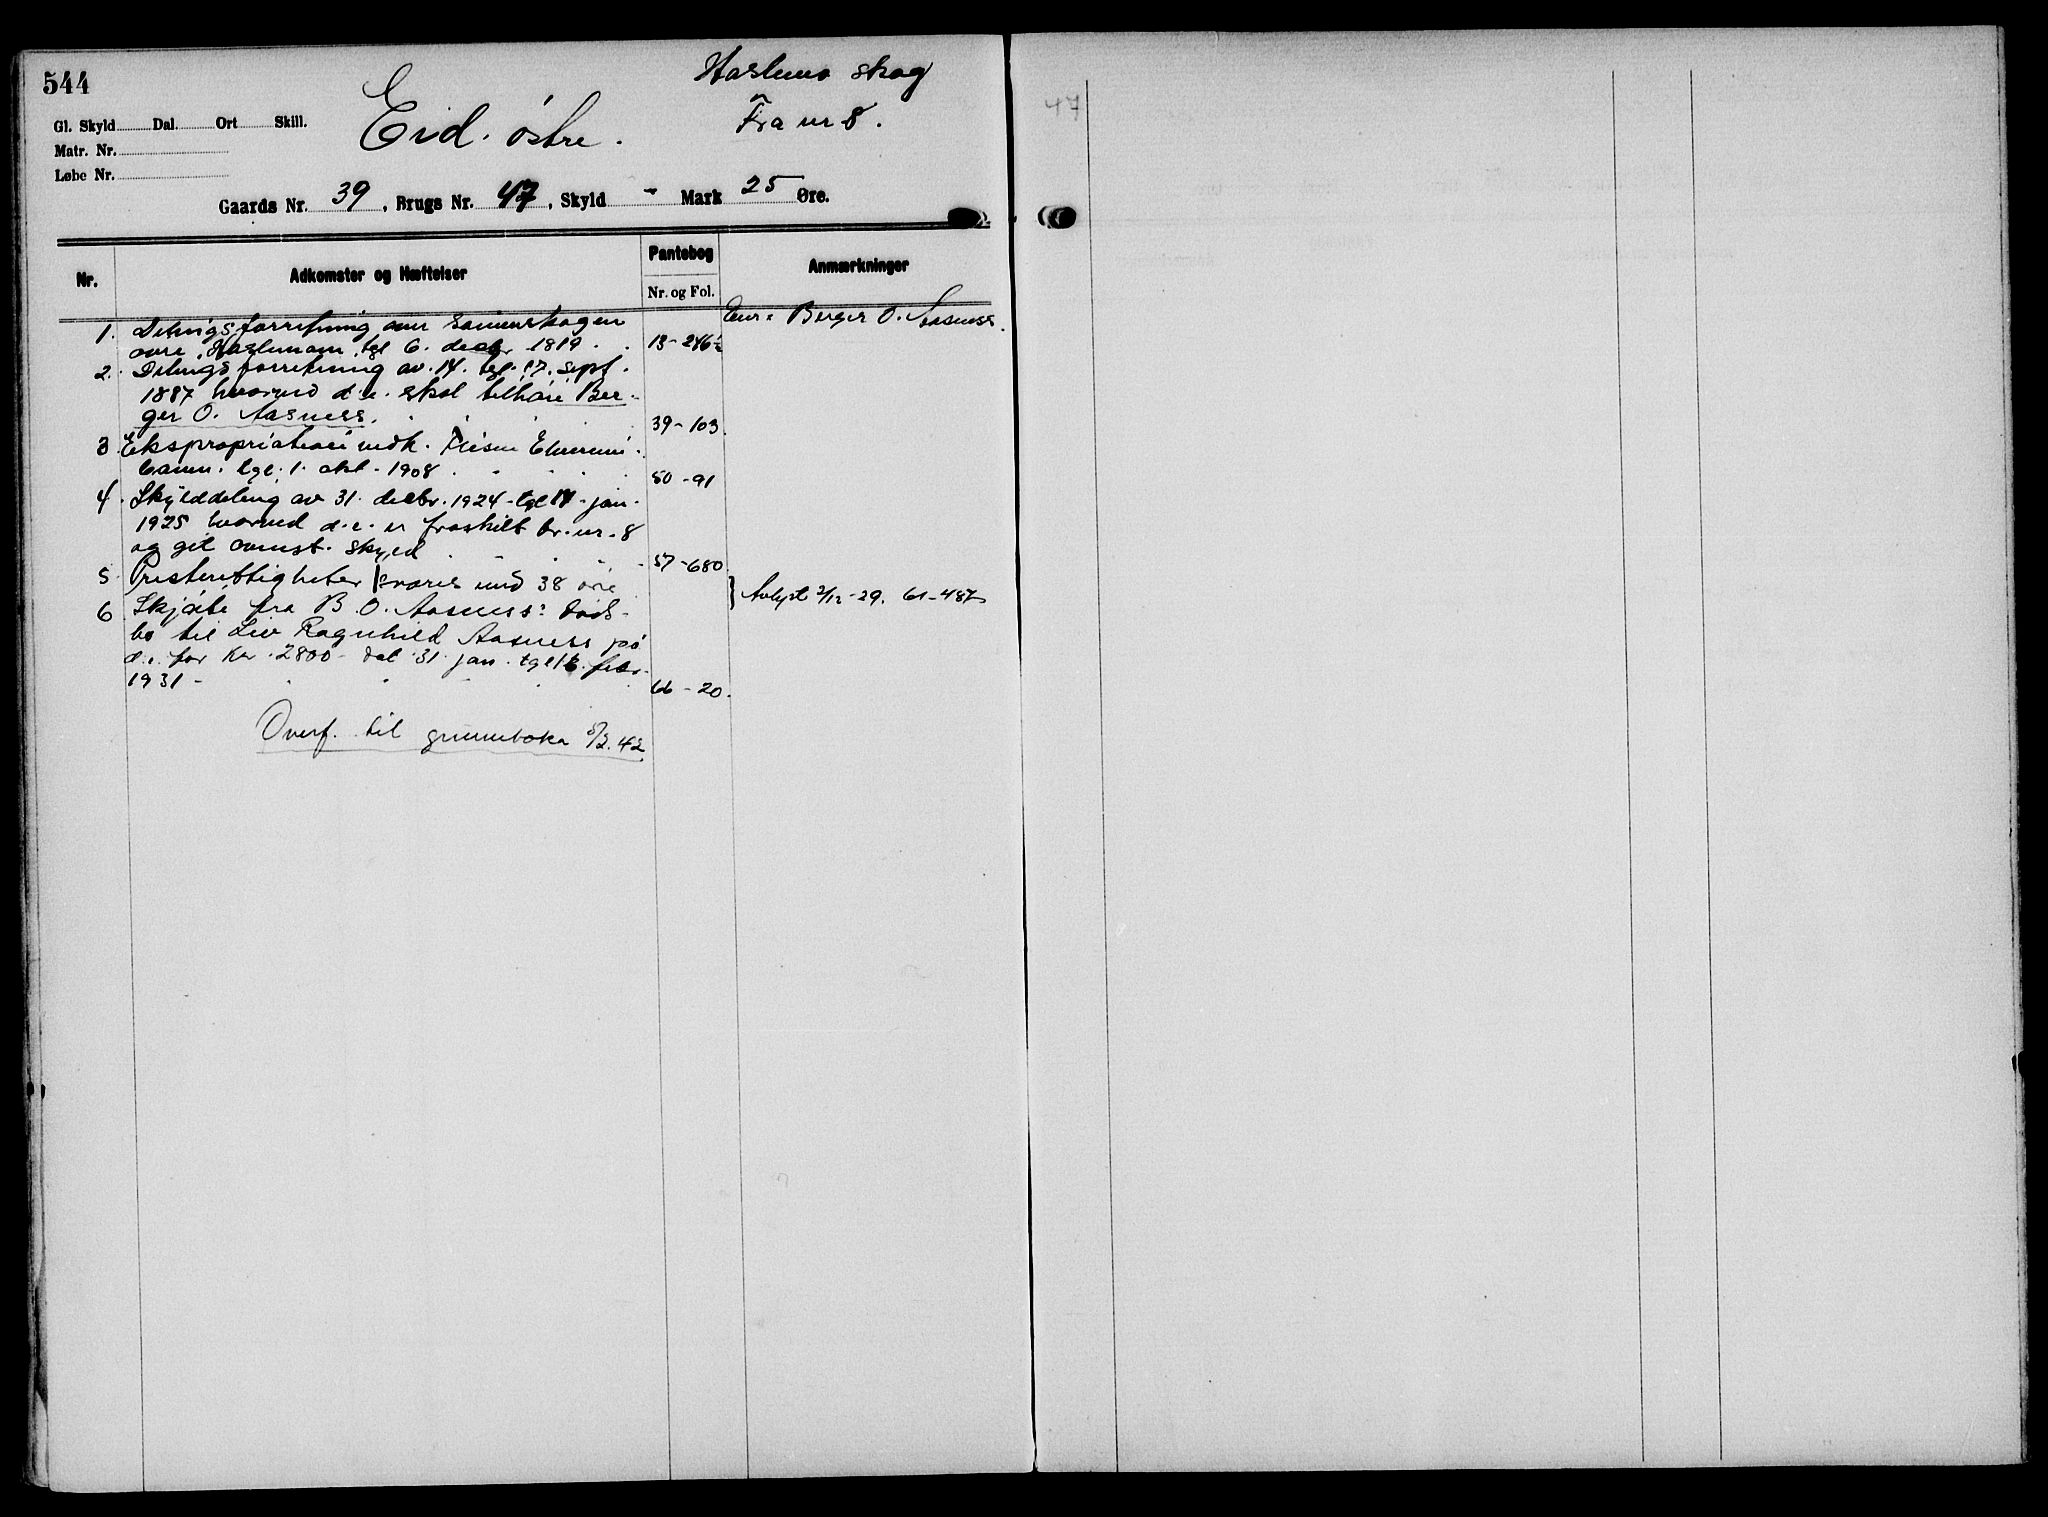 544
Haslemo skog
Gl. Skyld Dal. Ort Skill.
Eid. østre.
Fra nr 8.
Matr. Nr.
Løbe Nr.
Gaards Nr. 39, Brugs Nr. 47, Skyld - Mark 25 Øre.
Nr. Adkomster og Hæftelser Pantebog Anmærkninger
Nr. og Fol.
Eier: Berger O. Aasness.
1. Delingsforretning over
øvre Haslemoen tgl 6. decbr 1819. 13-246½
2. Delingsforretning av 14. tgl. 17. sept.
1887 hvorved d.e. skal tilhøre Ber-
ger O. Aasness. 39-103.
3. Ekspropriation vedk. Flisen Elverum
banen. tgl. 1. okt. 1908. 50-91
4. Skylddeling av 31. decbr. 1924 - tgl jan.
1925 hvorved d.e. er fraskilt br. nr. 8
og git ovenst. skyld 57-680
5. Presterettigheter svares med 38 øre
} Avlyst 2/12-29. 61-487
6 Skjøte fra B. O. Aasness: døds-
bo til Liv Ragnhild Aasness på
d.e. for kr. 2800 - dat 31. jan. tgl febr.
1931 - 66-20.
Overf. til grunnboka 5/2.42
47